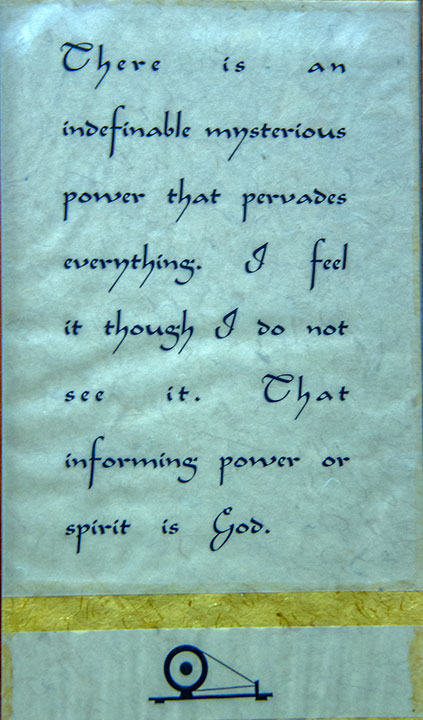 There is an
indefinable mysterious
power that pervades
everything. I feel
it though I do not
see it. That
informing power or
spirit is God.